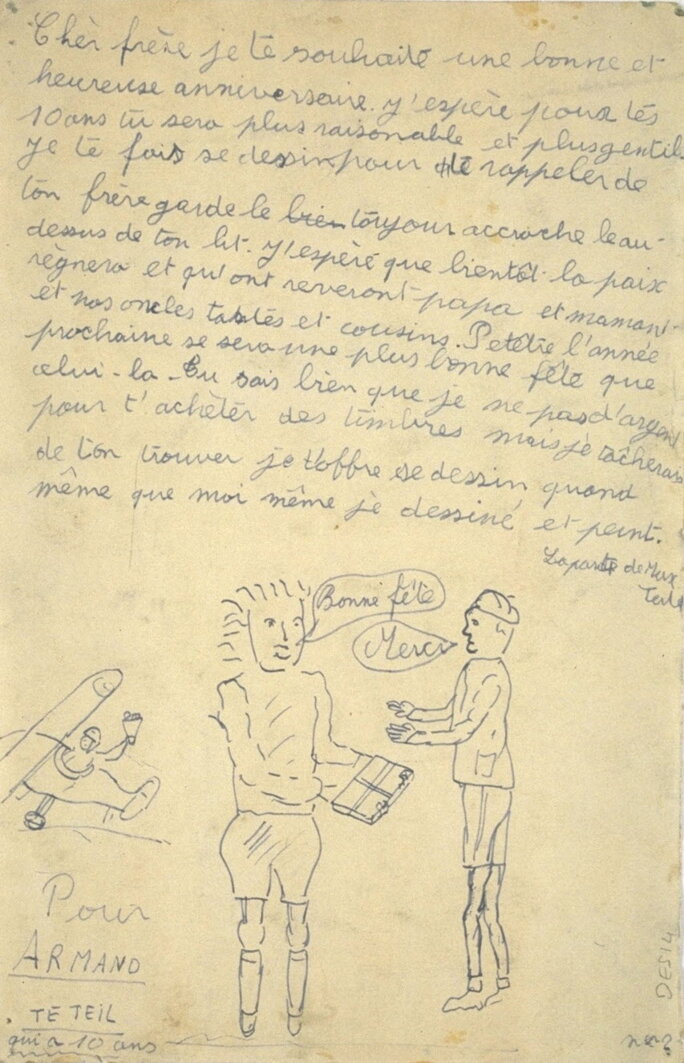 Cher frère je te souhaite une bonne et
heureuse anniversaire. y'espère pour tes
10 ans tu sera plus raisonable et plus gentil
Je te fais se dessin pour te rappeler de
ton frère garde le bien toujour accroche le au-
dessus de ton lit. y'espère que bientôt la paix
règnera et qu'ont reveront papa et maman
et nos oncles tantes et cousins. Petetre l'année
prochaine se sera une plus bonne fête que
celui-la. Tu sais bien que je ne pas d'argent
pour t'achèter des timbres mais je tâcherais
de t'on trouver je t'offre se dessin quand
même que moi même je dessiné et peint.
La parte de Max
Teteil
Bonne fête
Merci
Pour
ARMAND
TETEIL
qui a 10 ans
DES14